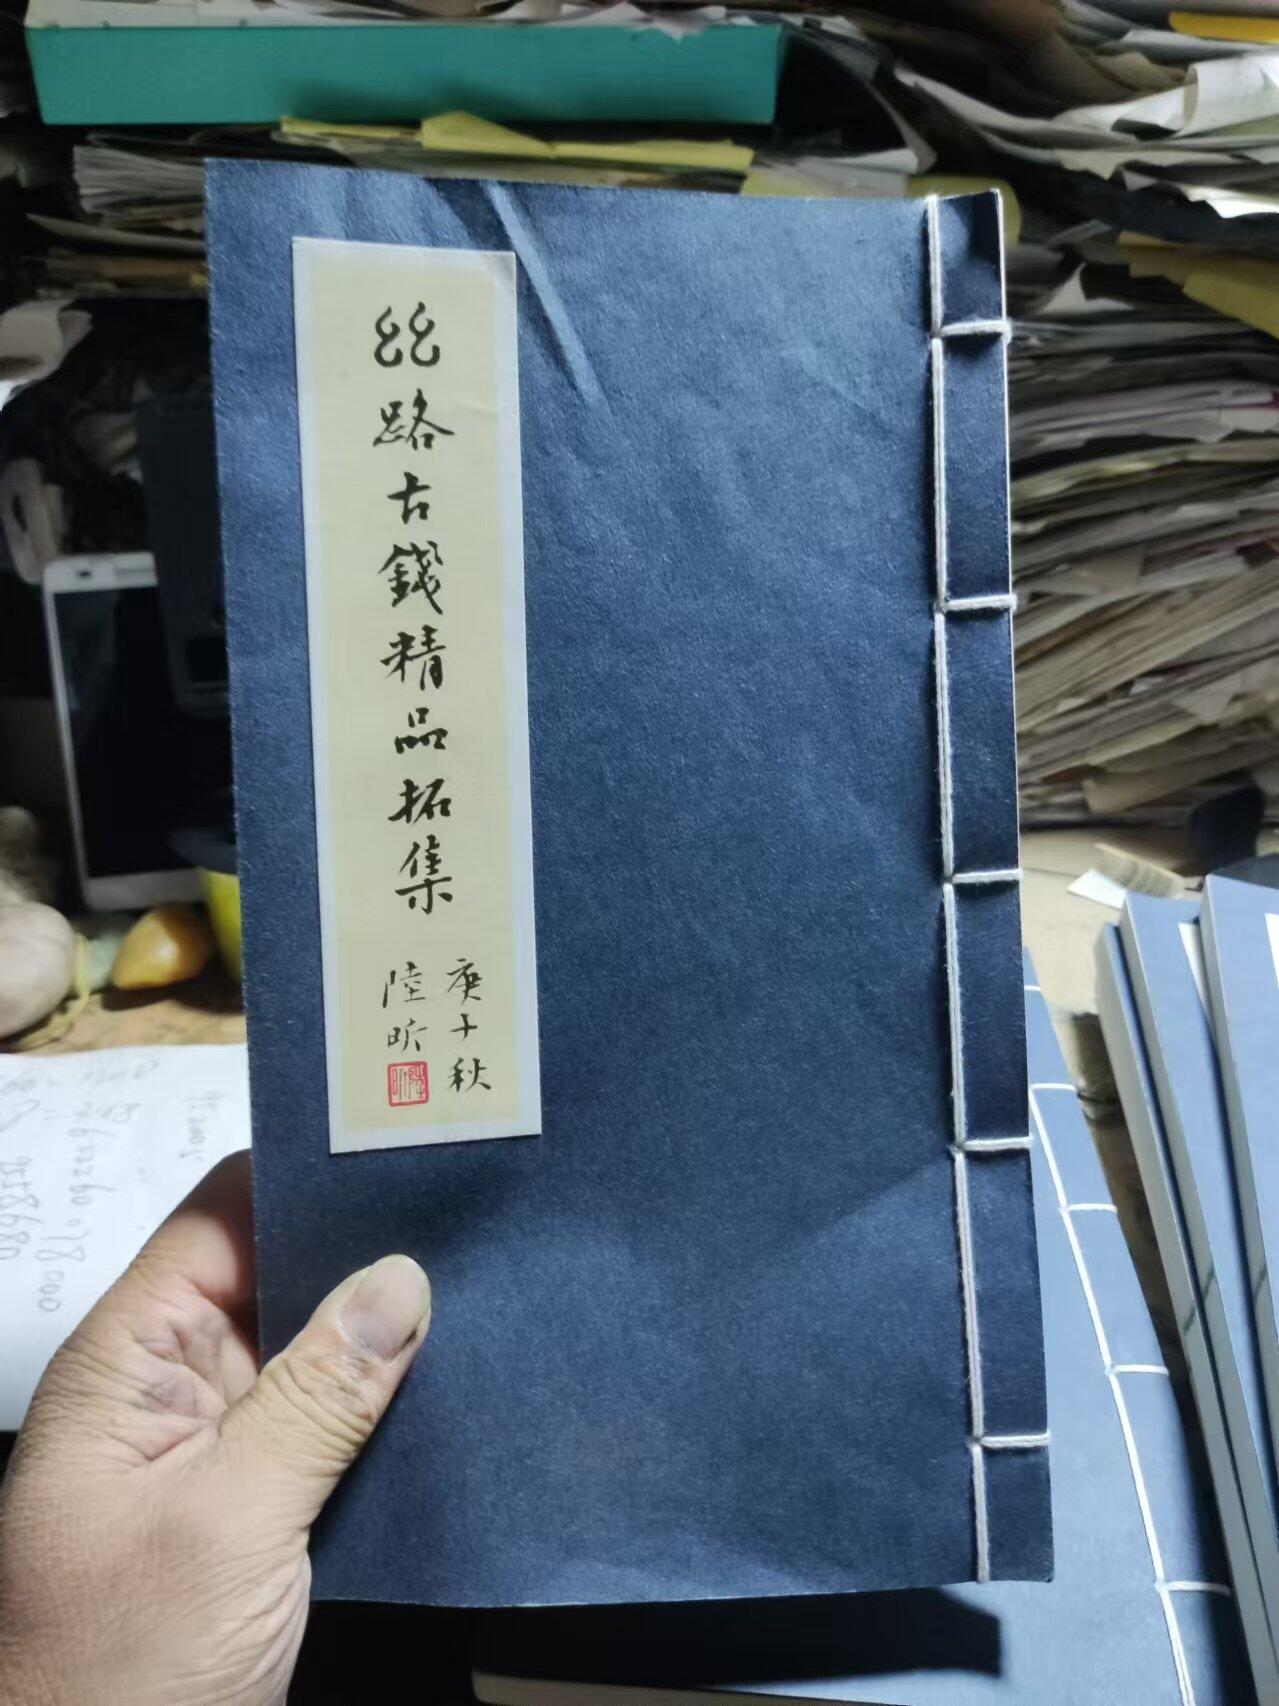 絲路古錢精品拓集
庚子秋
陸昕
陸昕